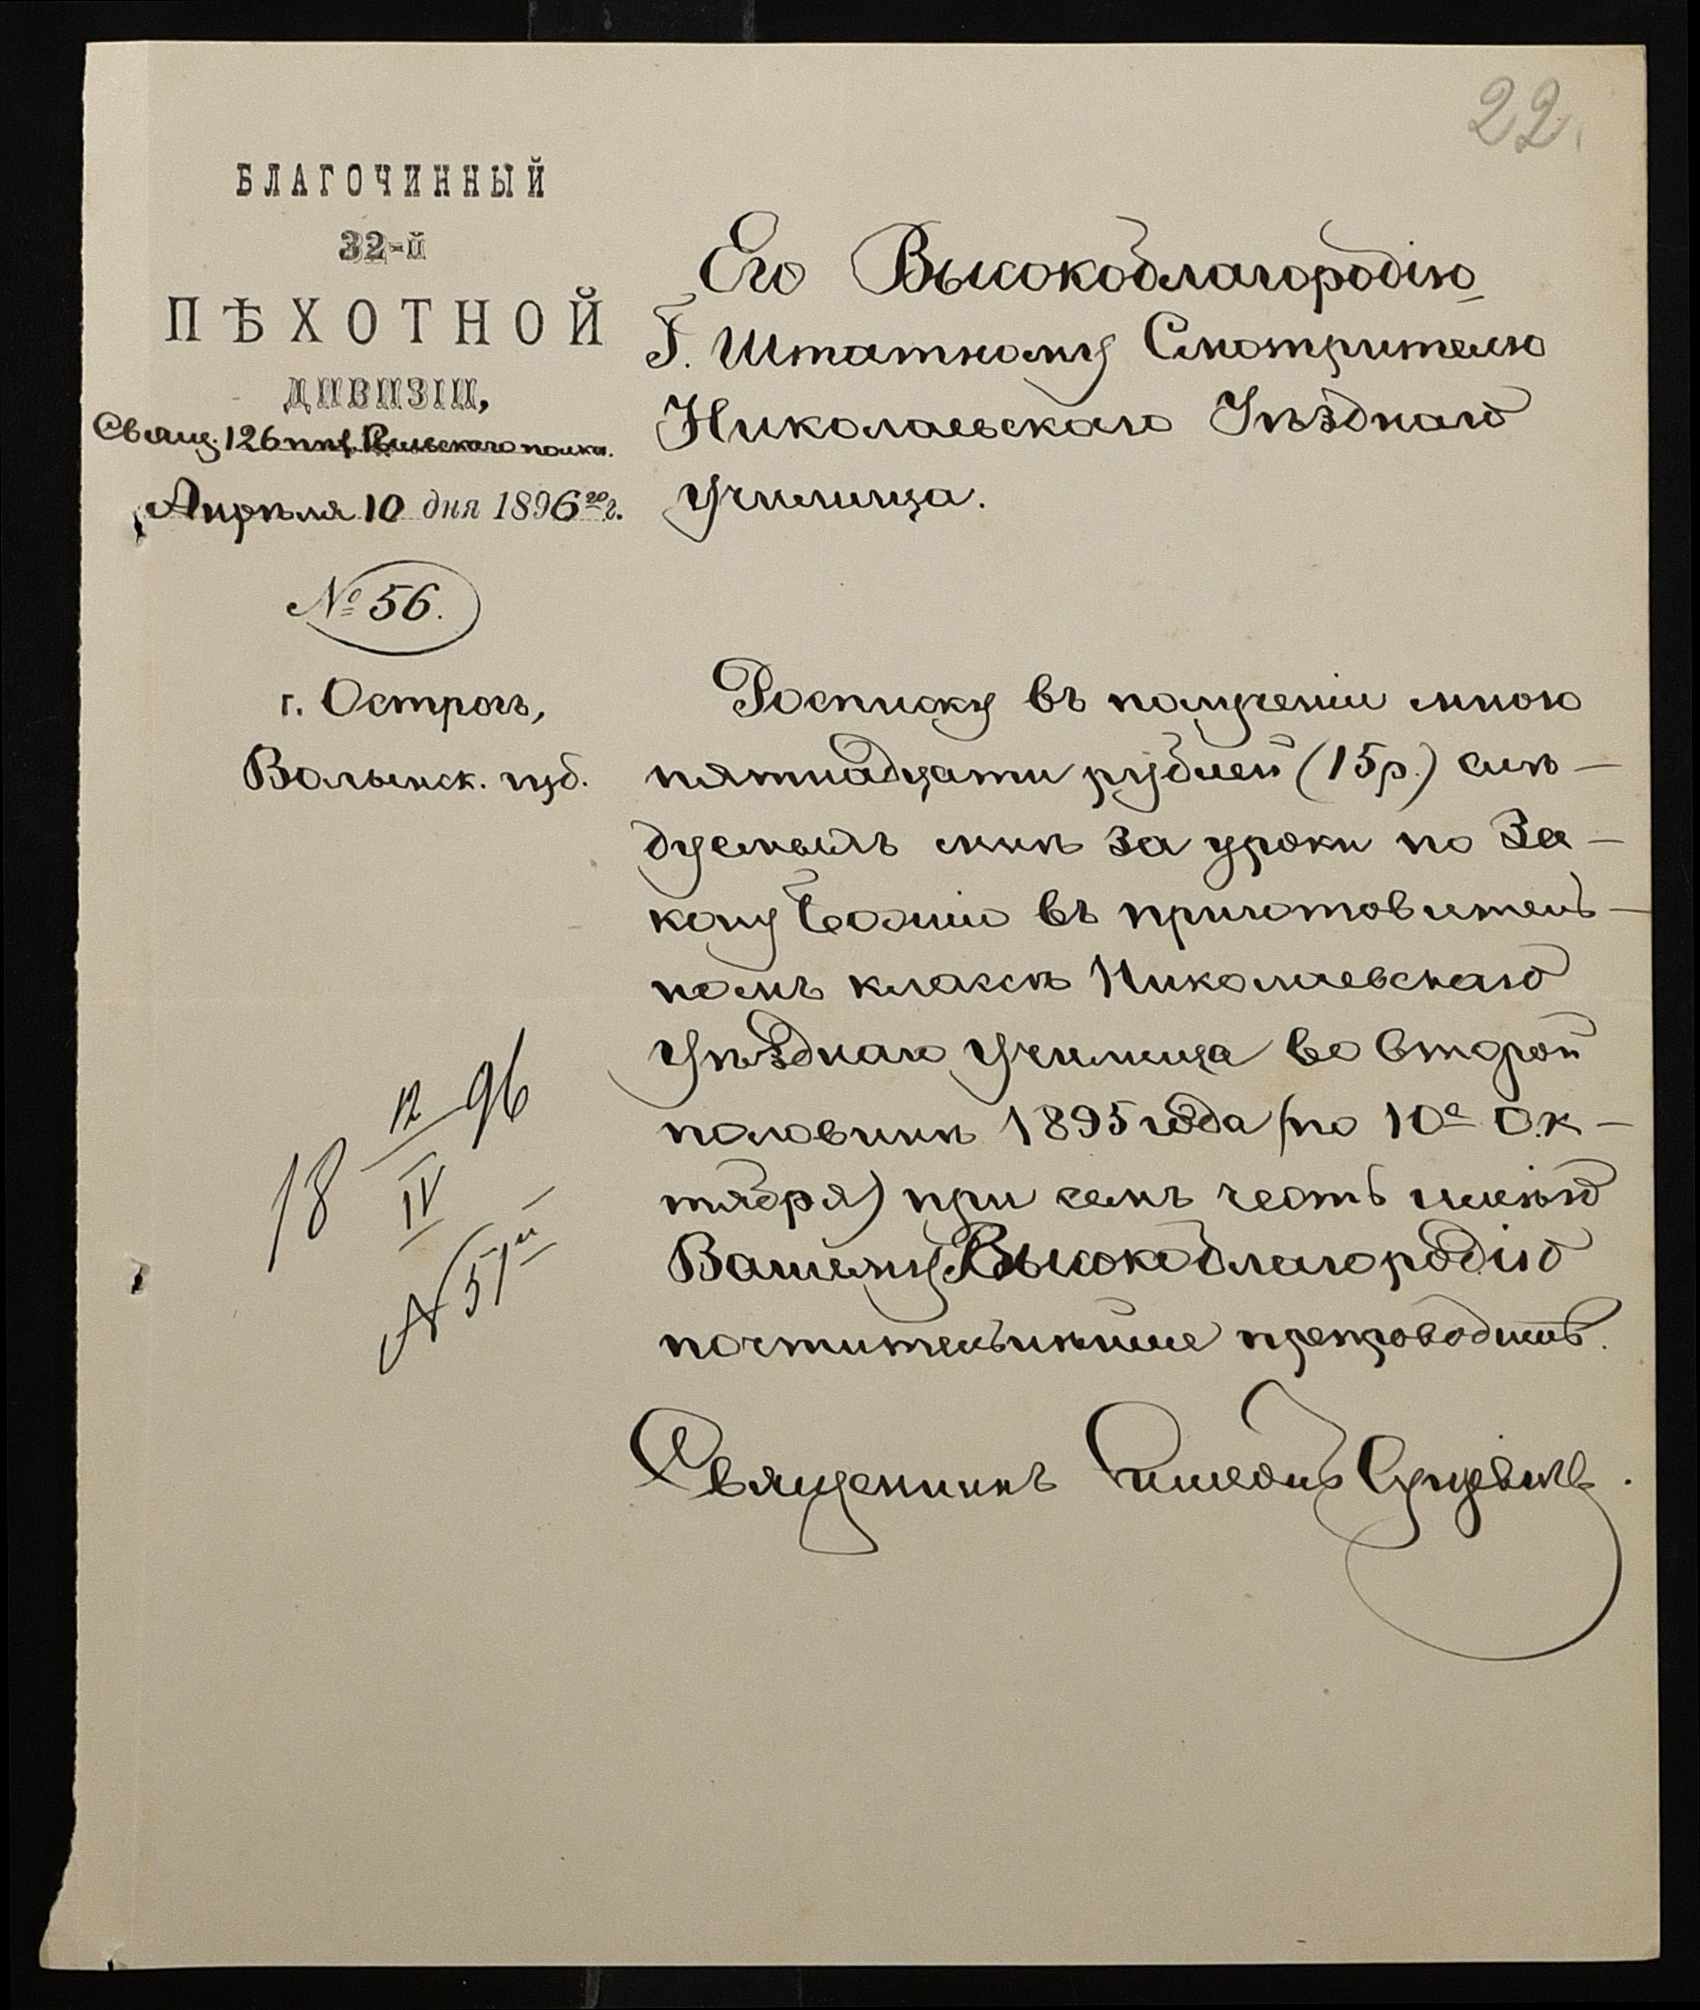 22.
БЛАГОЧИННЫЙ
32-й
ПѢХОТНОЙ
ДИВИЗІИ,
Свящ. 126 пѣх. Рыльскаго полка.
Апрѣля 10 дня 1896го г.
№ 56.
г. Острогъ,
Волынск. губ.
18 12/IV 96
№ 51
Его Высокоблагородію
Г. Штатному Смотрителю
Николаевскаго Уѣзднаго
Училища.
Росписку въ полученіи мною
пятнадцати рублей (15 р.) слѣ-
дуемыхъ мнѣ за уроки по За-
кону Божію въ приготовитель-
номъ классѣ Николаевскаго
Уѣзднаго Училища во второй
половинѣ 1895 года (по 10е Ок-
тября) при семъ честь имѣю
Вашему Высокоблагородію
почтительнѣйше препроводить.
Священникъ